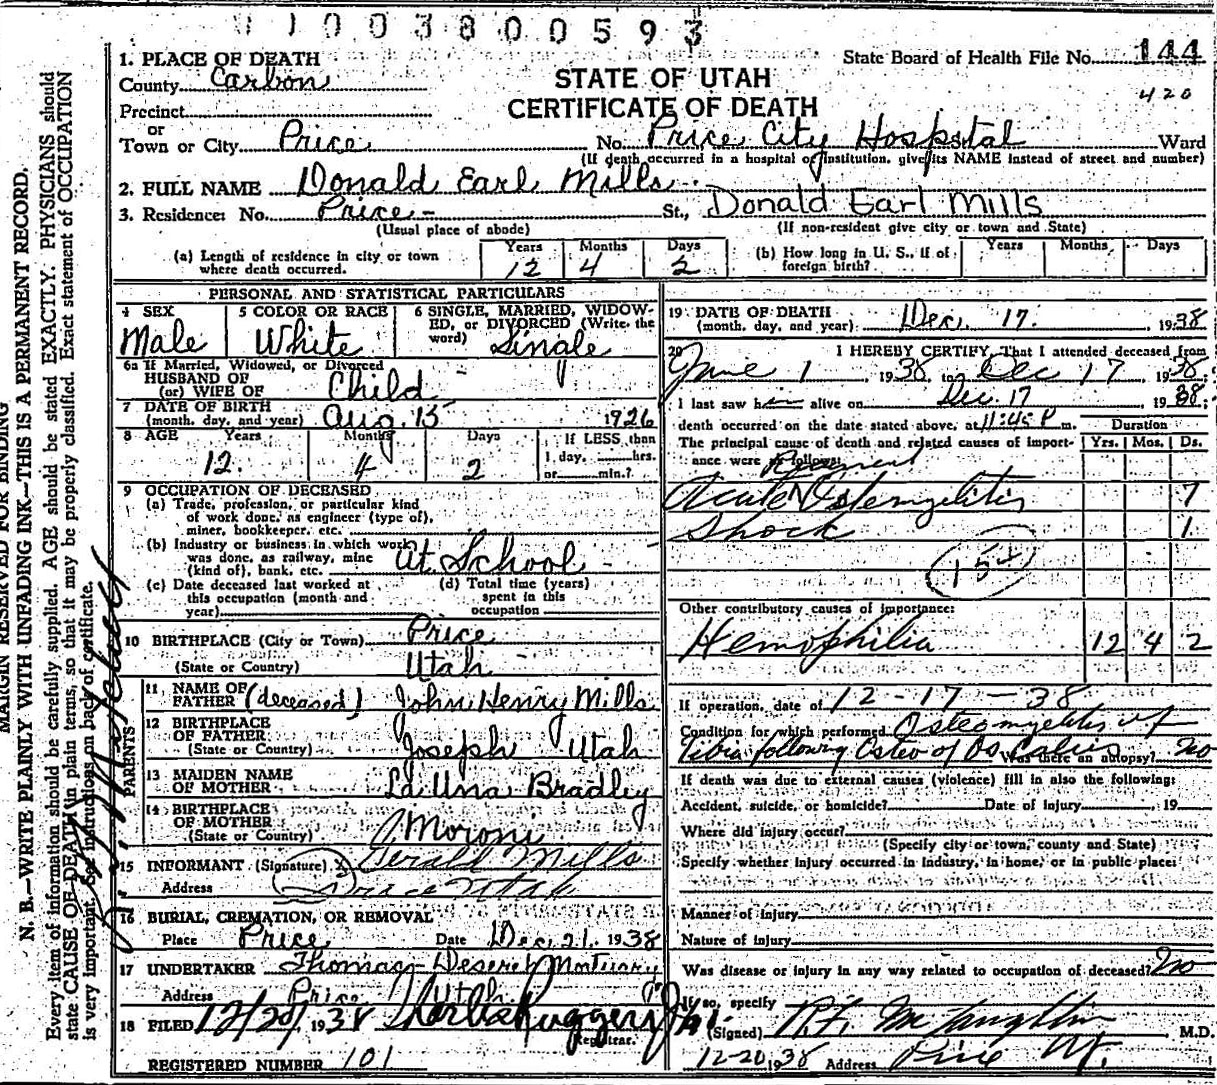 01003800593
State Board of Health File No. 144
420
1. PLACE OF DEATH
County Carbon
STATE OF UTAH
CERTIFICATE OF DEATH
Precinct
or
Town or City Price No. Price City Hospital St. Ward
(If death occurred in a hospital or institution, give its NAME instead of street and number)
2. FULL NAME Donald Earl Mills
3. Residence: No. Price - St., Donald Earl Mills
(Usual place of abode) (If non-resident give city or town and State)
(a) Length of residence in city or town where death occurred. Years 12 Months 4 Days 2
(b) How long in U. S., if of foreign birth? Years Months Days
PERSONAL AND STATISTICAL PARTICULARS
4 SEX Male
5 COLOR OR RACE White
6 SINGLE, MARRIED, WIDOWED, or DIVORCED (Write the word) Single
6a If Married, Widowed, or Divorced
HUSBAND OF
(or) WIFE OF Child
7 DATE OF BIRTH
(month, day, and year) Aug. 15 1926
8 AGE Years 12. Months 4 Days 2 If LESS than
1 day, hrs.
or min.?
9 OCCUPATION OF DECEASED
(a) Trade, profession, or particular kind
of work done, as engineer (type of),
miner, bookkeeper, etc.
(b) Industry or business in which work
was done, as railway, mine
(kind of), bank, etc. At School -
(c) Date deceased last worked at
this occupation (month and
year)
(d) Total time (years)
spent in this
occupation
10 BIRTHPLACE (City or Town) Price
(State or Country) Utah
PARENTS
11 NAME OF
FATHER (deceased) John Henry Mills
12 BIRTHPLACE
OF FATHER
(State or Country) Joseph Utah
13 MAIDEN NAME
OF MOTHER LaUna Bradley
14 BIRTHPLACE
OF MOTHER
(State or Country) Moroni
15 INFORMANT (Signature) X Gerald Mills
Address Price Utah
16 BURIAL, CREMATION, OR REMOVAL
Place Price Date Dec. 21. 1938
17 UNDERTAKER Thomas Deseret Mortuary
Address Price Utah
18 FILED 12/20/1938
Registrar.
REGISTERED NUMBER 101
19 DATE OF DEATH
(month, day, and year) Dec. 17. 1938
20 I HEREBY CERTIFY, That I attended deceased from
June 1 1938 to Dec 17 1938;
I last saw him alive on Dec. 17 1938;
death occurred on the date stated above, at 11:45 P m.
The principal cause of death and related causes of importance were as follows:
Duration
Yrs. Mos. Ds.
Acute Osteomyelitis 7
Shock 1.
154
Other contributory causes of importance:
Hemophilia 12 4 2
If operation, date of 12-17-38
Condition for which performed Osteomyelitis of
Tibia following Osteo of Os Calcis Was there an autopsy? no
If death was due to external causes (violence) fill in also the following:
Accident, suicide, or homicide? Date of injury 19
Where did injury occur?
(Specify city or town, county and State)
Specify whether injury occurred in industry, in home, or in public place:
Manner of injury
Nature of injury
Was disease or injury in any way related to occupation of deceased? no
If so, specify
(Signed) R.F. McLaughlin M.D.
12-20 1938 Address Price Ut.
MARGIN RESERVED FOR BINDING
N. B.—WRITE PLAINLY WITH UNFADING INK—THIS IS A PERMANENT RECORD.
Every item of information should be carefully supplied. AGE should be stated EXACTLY. PHYSICIANS should
state CAUSE OF DEATH in plain terms, so that it may be properly classified. Exact statement of OCCUPATION
is very important. See instructions on back of certificate.